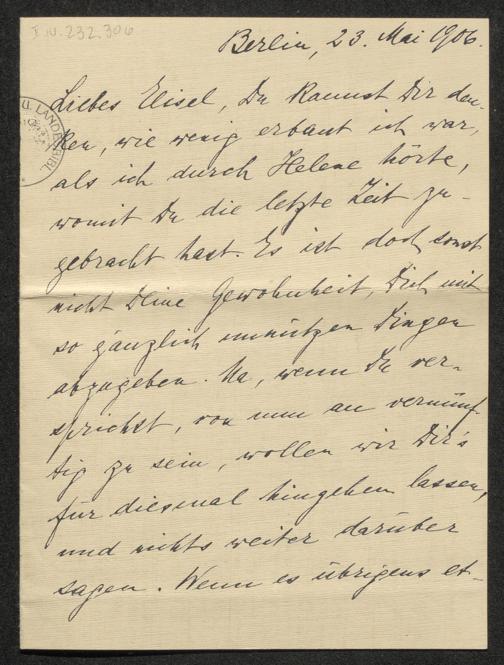 I.N. 232.306
Berlin, 23. Mai 1906.
U. LANDESBIBL
Liebes Elisel, Du kannst Dir den-
ken, wie wenig erbaut ich war,
als ich durch Helene hörte,
womit Du die letzte Zeit zu-
gebracht hast. Es ist doch sonst
nicht Deine Gewohnheit, Dich mit
so gänzlich unnützen Dingen
abzugeben. Na, wenn Du ver-
sprichst, von nun an vernünf-
tig zu sein, wollen wir Dir's
für diesmal hingehen lassen,
und nichts weiter darüber
sagen. Wenn es übrigens et-